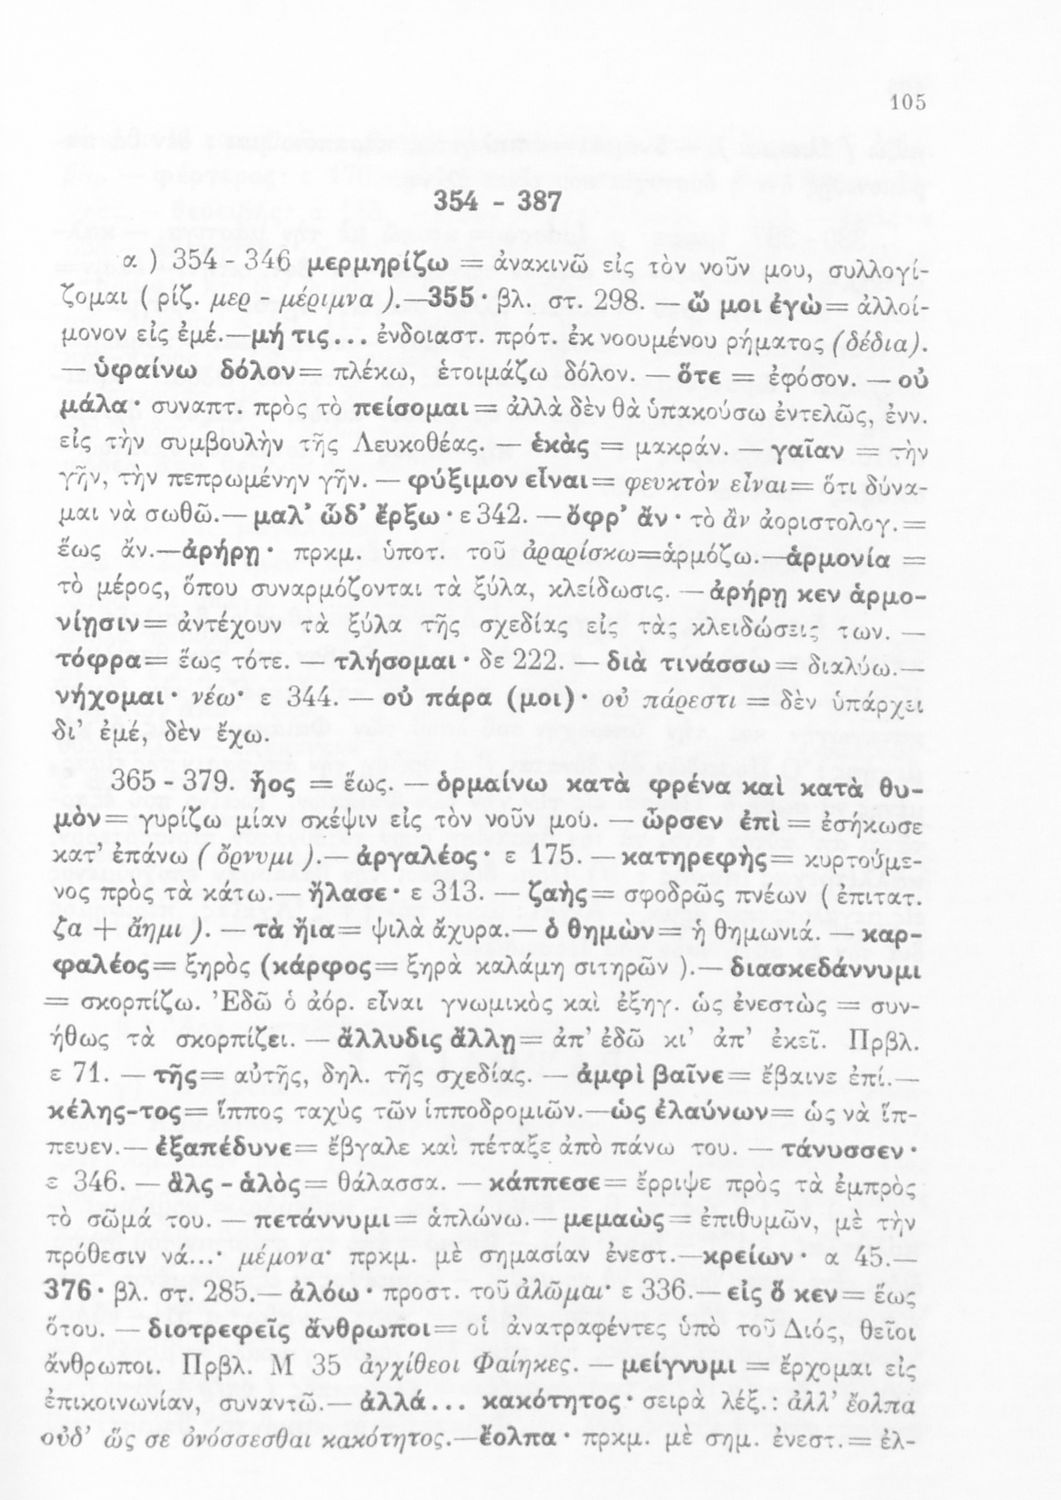 105
354 - 387
α ) 354 - 346 μερμηρίζω = ἀνακινῶ εἰς τὸν νοῦν μου, συλλογί-
ζομαι ( ρίζ. μερ - μέριμνα ).—355 · βλ. στ. 298. — ὤ μοι ἐγὼ = ἀλλοί-
μονον εἰς ἐμέ.—μή τις... ἐνδοιαστ. πρότ. ἐκ νοουμένου ρήματος (δέδια).
— ὑφαίνω δόλον = πλέκω, ἑτοιμάζω δόλον. — ὅτε = ἐφόσον. — οὐ
μάλα · συναπτ. πρὸς τὸ πείσομαι = ἀλλὰ δὲν θὰ ὑπακούσω ἐντελῶς, ἐνν.
εἰς τὴν συμβουλὴν τῆς Λευκοθέας. — ἑκὰς = μακράν. — γαῖαν = τὴν
γῆν, τὴν πεπρωμένην γῆν. — φύξιμον εἶναι = φευκτὸν εἶναι = ὅτι δύνα-
μαι νὰ σωθῶ.— μαλ’ ὧδ’ ἔρξω · ε 342. — ὄφρ’ ἂν · τὸ ἂν ἀοριστολογ. =
ἕως ἄν.—ἀρήρῃ · πρκμ. ὑποτ. τοῦ ἀραρίσκω=ἁρμόζω.—ἁρμονία =
τὸ μέρος, ὅπου συναρμόζονται τὰ ξύλα, κλείδωσις. — ἀρήρῃ κεν ἁρμο-
νίῃσιν = ἀντέχουν τὰ ξύλα τῆς σχεδίας εἰς τὰς κλειδώσεις των. —
τόφρα = ἕως τότε. — τλήσομαι · δε 222. — διὰ τινάσσω = διαλύω.—
νήχομαι · νέω · ε 344. — οὐ πάρα (μοι) · οὐ πάρεστι = δὲν ὑπάρχει
δι’ ἐμέ, δὲν ἔχω.
365 - 379. ἧος = ἕως. — ὁρμαίνω κατὰ φρένα καὶ κατὰ θυ-
μὸν = γυρίζω μίαν σκέψιν εἰς τὸν νοῦν μού. — ὦρσεν ἐπὶ = ἐσήκωσε
κατ’ ἐπάνω ( ὄρνυμι ).— ἀργαλέος · ε 175. — κατηρεφὴς = κυρτούμε-
νος πρὸς τὰ κάτω.— ἤλασε · ε 313. — ζαὴς = σφοδρῶς πνέων ( ἐπιτατ.
ζα + ἄημι ). — τὰ ἤια = ψιλὰ ἄχυρα.— ὁ θημὼν = ἡ θημωνιά. — καρ-
φαλέος = ξηρὸς (κάρφος = ξηρὰ καλάμη σιτηρῶν ).— διασκεδάννυμι
= σκορπίζω. Ἐδῶ ὁ ἀόρ. εἶναι γνωμικὸς καὶ ἐξηγ. ὡς ἐνεστὼς = συν-
ήθως τὰ σκορπίζει. — ἄλλυδις ἄλλῃ = ἀπ’ ἐδῶ κι’ ἀπ’ ἐκεῖ. Πρβλ.
ε 71. — τῆς = αὐτῆς, δηλ. τῆς σχεδίας. — ἀμφὶ βαῖνε = ἔβαινε ἐπί.—
κέλης-τος = ἵππος ταχὺς τῶν ἱπποδρομιῶν.—ὡς ἐλαύνων = ὡς νὰ ἵπ-
πευεν.— ἐξαπέδυνε = ἔβγαλε καὶ πέταξε ἀπὸ πάνω του. — τάνυσσεν ·
ε 346. — ἃλς - ἁλὸς = θάλασσα. — κάππεσε = ἔρριψε πρὸς τὰ ἐμπρὸς
τὸ σῶμά του. — πετάννυμι = ἁπλώνω.— μεμαὼς = ἐπιθυμῶν, μὲ τὴν
πρόθεσιν νά...· μέμονα · πρκμ. μὲ σημασίαν ἐνεστ.—κρείων · α 45.—
376 · βλ. στ. 285.— ἀλόω · προστ. τοῦ ἀλῶμαι · ε 336.— εἰς ὅ κεν = ἕως
ὅτου. — διοτρεφεῖς ἄνθρωποι = οἱ ἀνατραφέντες ὑπὸ τοῦ Διός, θεῖοι
ἄνθρωποι. Πρβλ. Μ 35 ἀγχίθεοι Φαίηκες. — μείγνυμι = ἔρχομαι εἰς
ἐπικοινωνίαν, συναντῶ.— ἀλλά... κακότητος · σειρὰ λέξ. : ἀλλ’ ἔολπα
οὐδ’ ὥς σε ὀνόσσεσθαι κακότητος.—ἔολπα · πρκμ. μὲ σημ. ἐνεστ. = ἐλ-